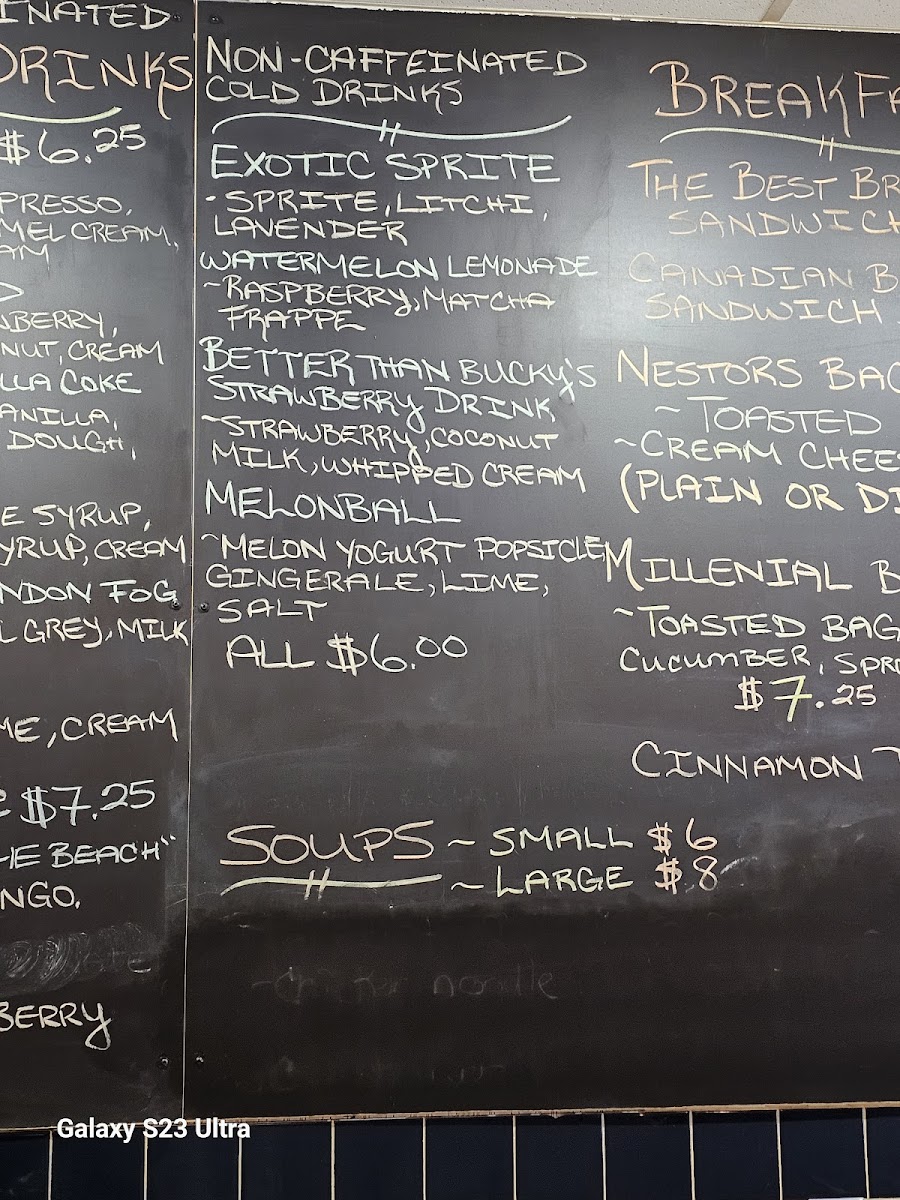 INATED
DRINKS
$6.25
PRESSO,
MEL CREAM,
AM
NBERRY,
NUT, CREAM
LLA COKE
ANILLA,
DOUGH,
E SYRUP,
YRUP, CREAM
NDON FOG
L GREY, MILK
ME, CREAM
$7.25
IE BEACH"
NGO,
BERRY
NON-CAFFEINATED
COLD DRINKS
EXOTIC SPRITE
- SPRITE, LITCHI,
LAVENDER
WATERMELON LEMONADE
~RASPBERRY, MATCHA
FRAPPE
BETTER THAN BUCKY'S
STRAWBERRY DRINK,
~STRAWBERRY, COCONUT
MILK, WHIPPED CREAM
MELONBALL
~MELON YOGURT POPSICLE,
GINGERALE, LIME,
SALT
ALL $6.00
SOUPS ~ SMALL $6
~ LARGE $8
noodle
BREAKFA
THE BEST BR
SANDWICH
CANADIAN B
SANDWICH
NESTORS BAG
~ TOASTED
~CREAM CHEE
(PLAIN OR DI
MILLENIAL B
~TOASTED BAG
CUCUMBER, SPR
$7.25
CINNAMON T
Galaxy S23 Ultra